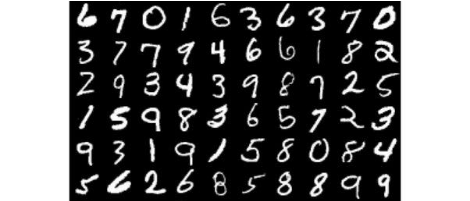 6 7 0 1 6 3 6 3 7 0
3 7 7 9 4 6 6 1 8 2
2 9 3 4 3 9 8 7 2 5
1 5 9 8 3 6 5 7 2 3
9 3 1 9 1 5 8 0 8 4
5 6 2 6 8 5 8 8 9 9